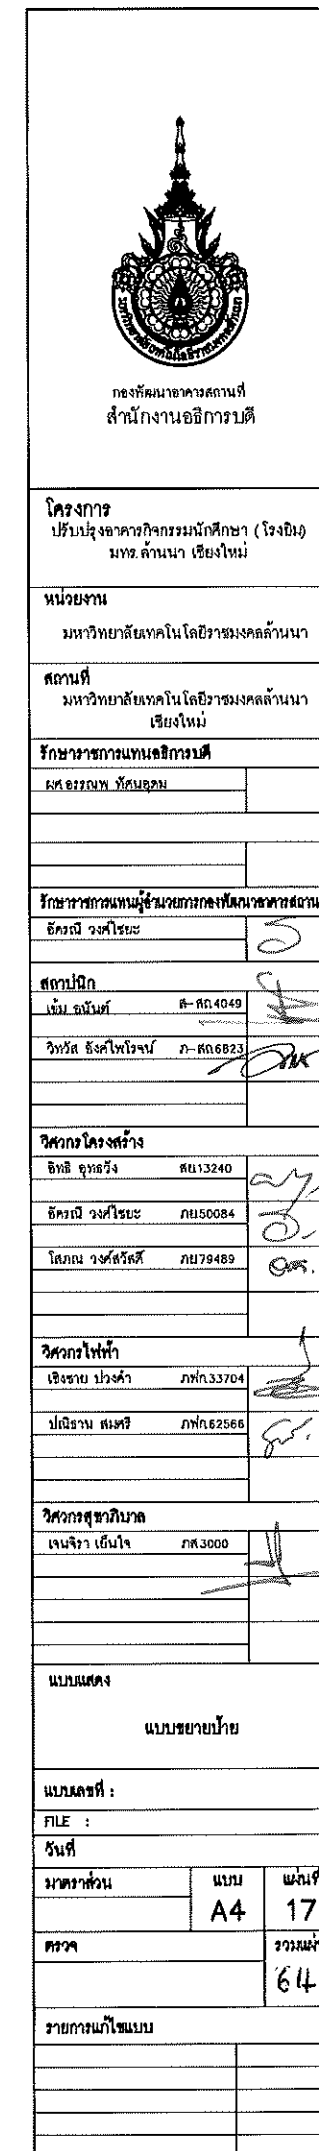 กองพัฒนาอาคารสถานที่
สำนักงานอธิการบดี
โครงการ
ปรับปรุงอาคารกิจกรรมนักศึกษา (โรงยิม)
มทร.ล้านนา เชียงใหม่
หน่วยงาน
มหาวิทยาลัยเทคโนโลยีราชมงคลล้านนา
สถานที่
มหาวิทยาลัยเทคโนโลยีราชมงคลล้านนา
เชียงใหม่
รักษาราชการแทนอธิการบดี
ผศ.อรรณพ ทัศนอุดม
รักษาราชการแทนผู้อำนวยการกองพัฒนาอาคารสถาน
อัครณี วงศ์ไชยะ
สถาปนิก
เข้ม อนันต์ ส-สถ.4049
วิทวัส อิงค์ไพโรจน์ ภ-สถ.6823
วิศวกรโครงสร้าง
อิทธิ อุทธวัง สย13240
อัครณี วงศ์ไชยะ ภย50084
โสภณ วงค์สวัสดิ์ ภย79489
วิศวกรไฟฟ้า
เชิงชาย ปวงคำ ภฟก.33704
ปณิธาน สมศรี ภฟก.62566
วิศวกรสุขาภิบาล
เจนจิรา เย็นใจ ภส.3000
แบบแสดง
แบบขยายป้าย
แบบเลขที่ :
FILE :
วันที่
มาตราส่วน แบบ แผ่นที่
A4 17
ตรวจ รวมแผ่
64
รายการแก้ไขแบบ